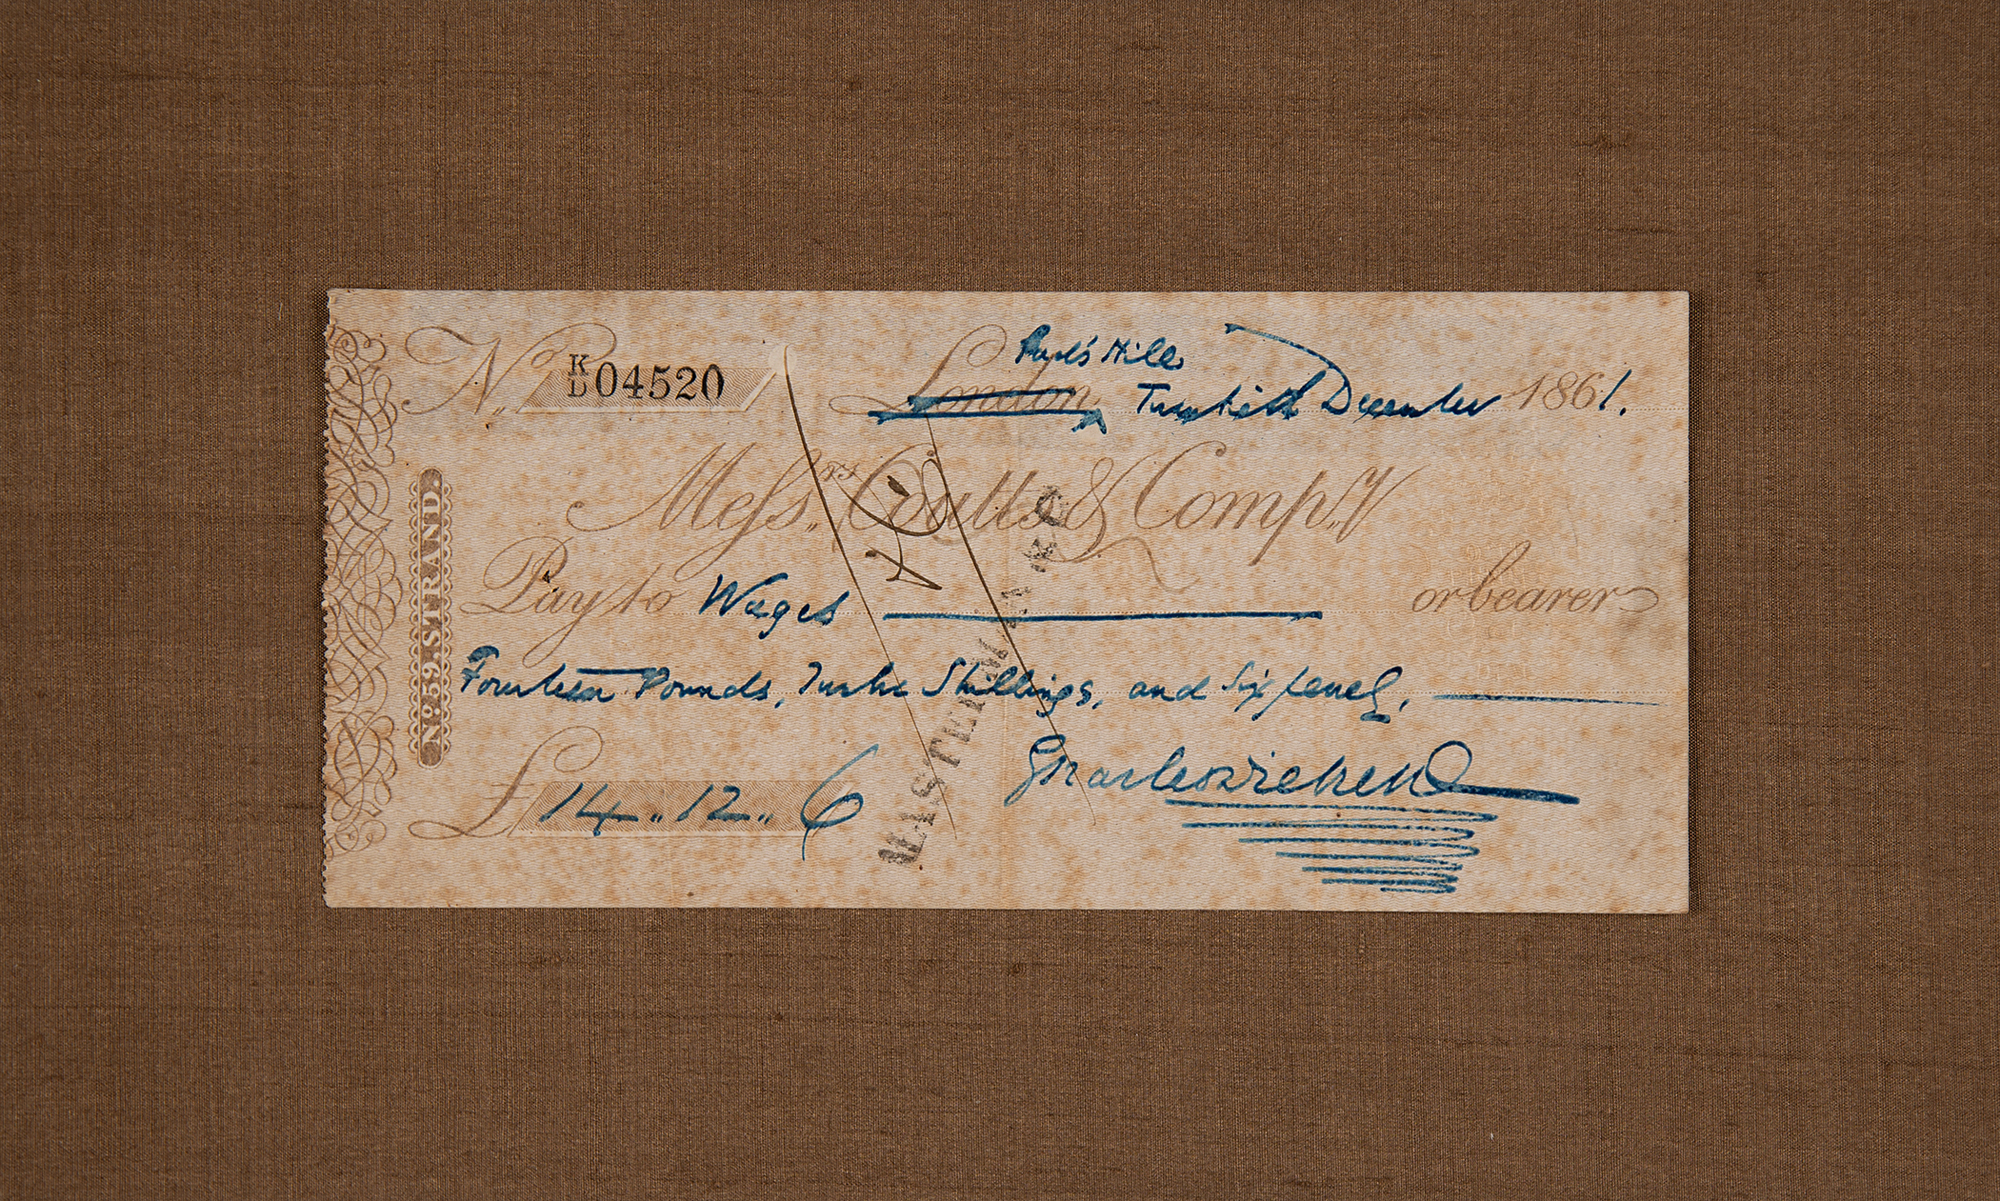 No. K/D 04520
Gad's Hill
London Twentieth December 1861.
Messrs. Coutts & Compy.
Pay to Wages or bearer
Fourteen Pounds, Twelve Shillings, and Sixpence,
£ 14 „ 12 „ 6
Charles Dickens
No. 59. STRAND.